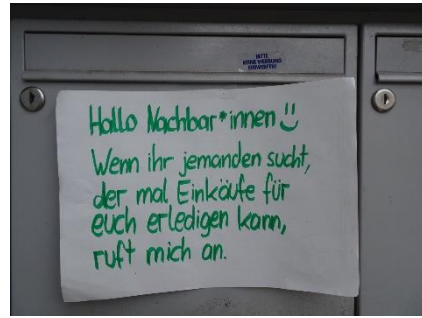 BITTE
KEINE WERBUNG
EINWERFEN!
Hallo Nachbar*innen ü
Wenn ihr jemanden sucht,
der mal Einkäufe für
euch erledigen kann,
ruft mich an.